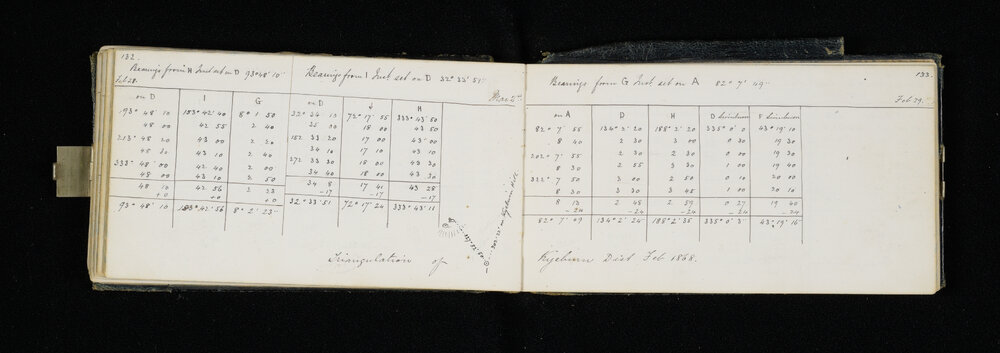 132.
Bearings from H Inst set on D 93° 48' 10"
Bearings from I Inst set on D 32° 33' 51"
Feb 28.
Mar 2nd
on D I G
on D J H
93° 48' 10 183° 42' 40 8° 1 50
32° 34 10 72° 17' 55 333° 43' 50
48 00 42 55 2 40
35 00 18 00 43 50
213° 48 20 43 00 2 20
152 33 20 17 00 43 00
48 30 43 10 2 40
34 10 17 10 43 10
333° 48' 00 42 40 2 00
272 33 30 18 00 43 30
48 00 43 10 2 50
34 40 18 00 43 30
48 10 42 56 2 23
34 8 17 41 43 28
+0 +0 +0
-17 -17
93° 48' 10 183° 42' 56 8° 2' 23"
32° 33' 51 72° 17' 24 333° 43' 11
Triangulation of
133.
Bearings from G Inst set on A 82° 7' 49"
Feb 29.
on A D H D F
82° 7 55 134° 2' 20 188° 2' 20 335° 0' 0 43° 19' 10
8 40 2 30 3 00 0 30 19 30
202° 7' 55 2 30 2 30 0 00 19 30
8 30 2 55 3 30 1 00 19 40
322° 7 50 3 00 2 50 0 10 20 00
8 30 3 30 3 45 1 00 20 10
8 13 2 48 2 59 0 27 19 40
-24 -24 -24 -24 -24
82° 7' 49 134° 2' 24 188° 2' 35 335° 0' 3" 43° 19' 16
Kyeburn Dist Feb 1868.